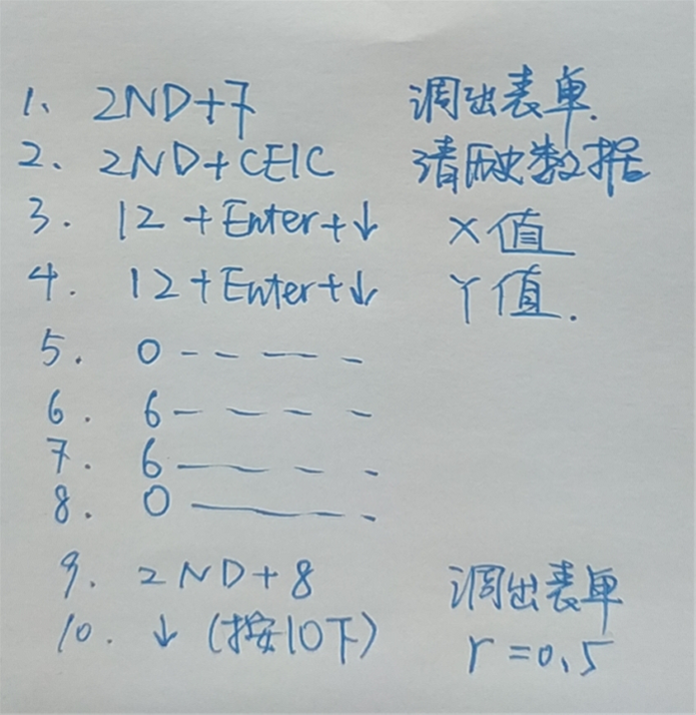 1、 2ND+7 调出表单.
2、 2ND+CE1C 清历史数据
3. 12+Enter+↓ X值
4. 12+Enter+↓ Y值.
5. 0 - - - - -
6. 6 - - - - -
7. 6 - - - - -
8. 0 - - - - -
9. 2ND+8 调出表单
10. ↓ (按10下) r=0.5